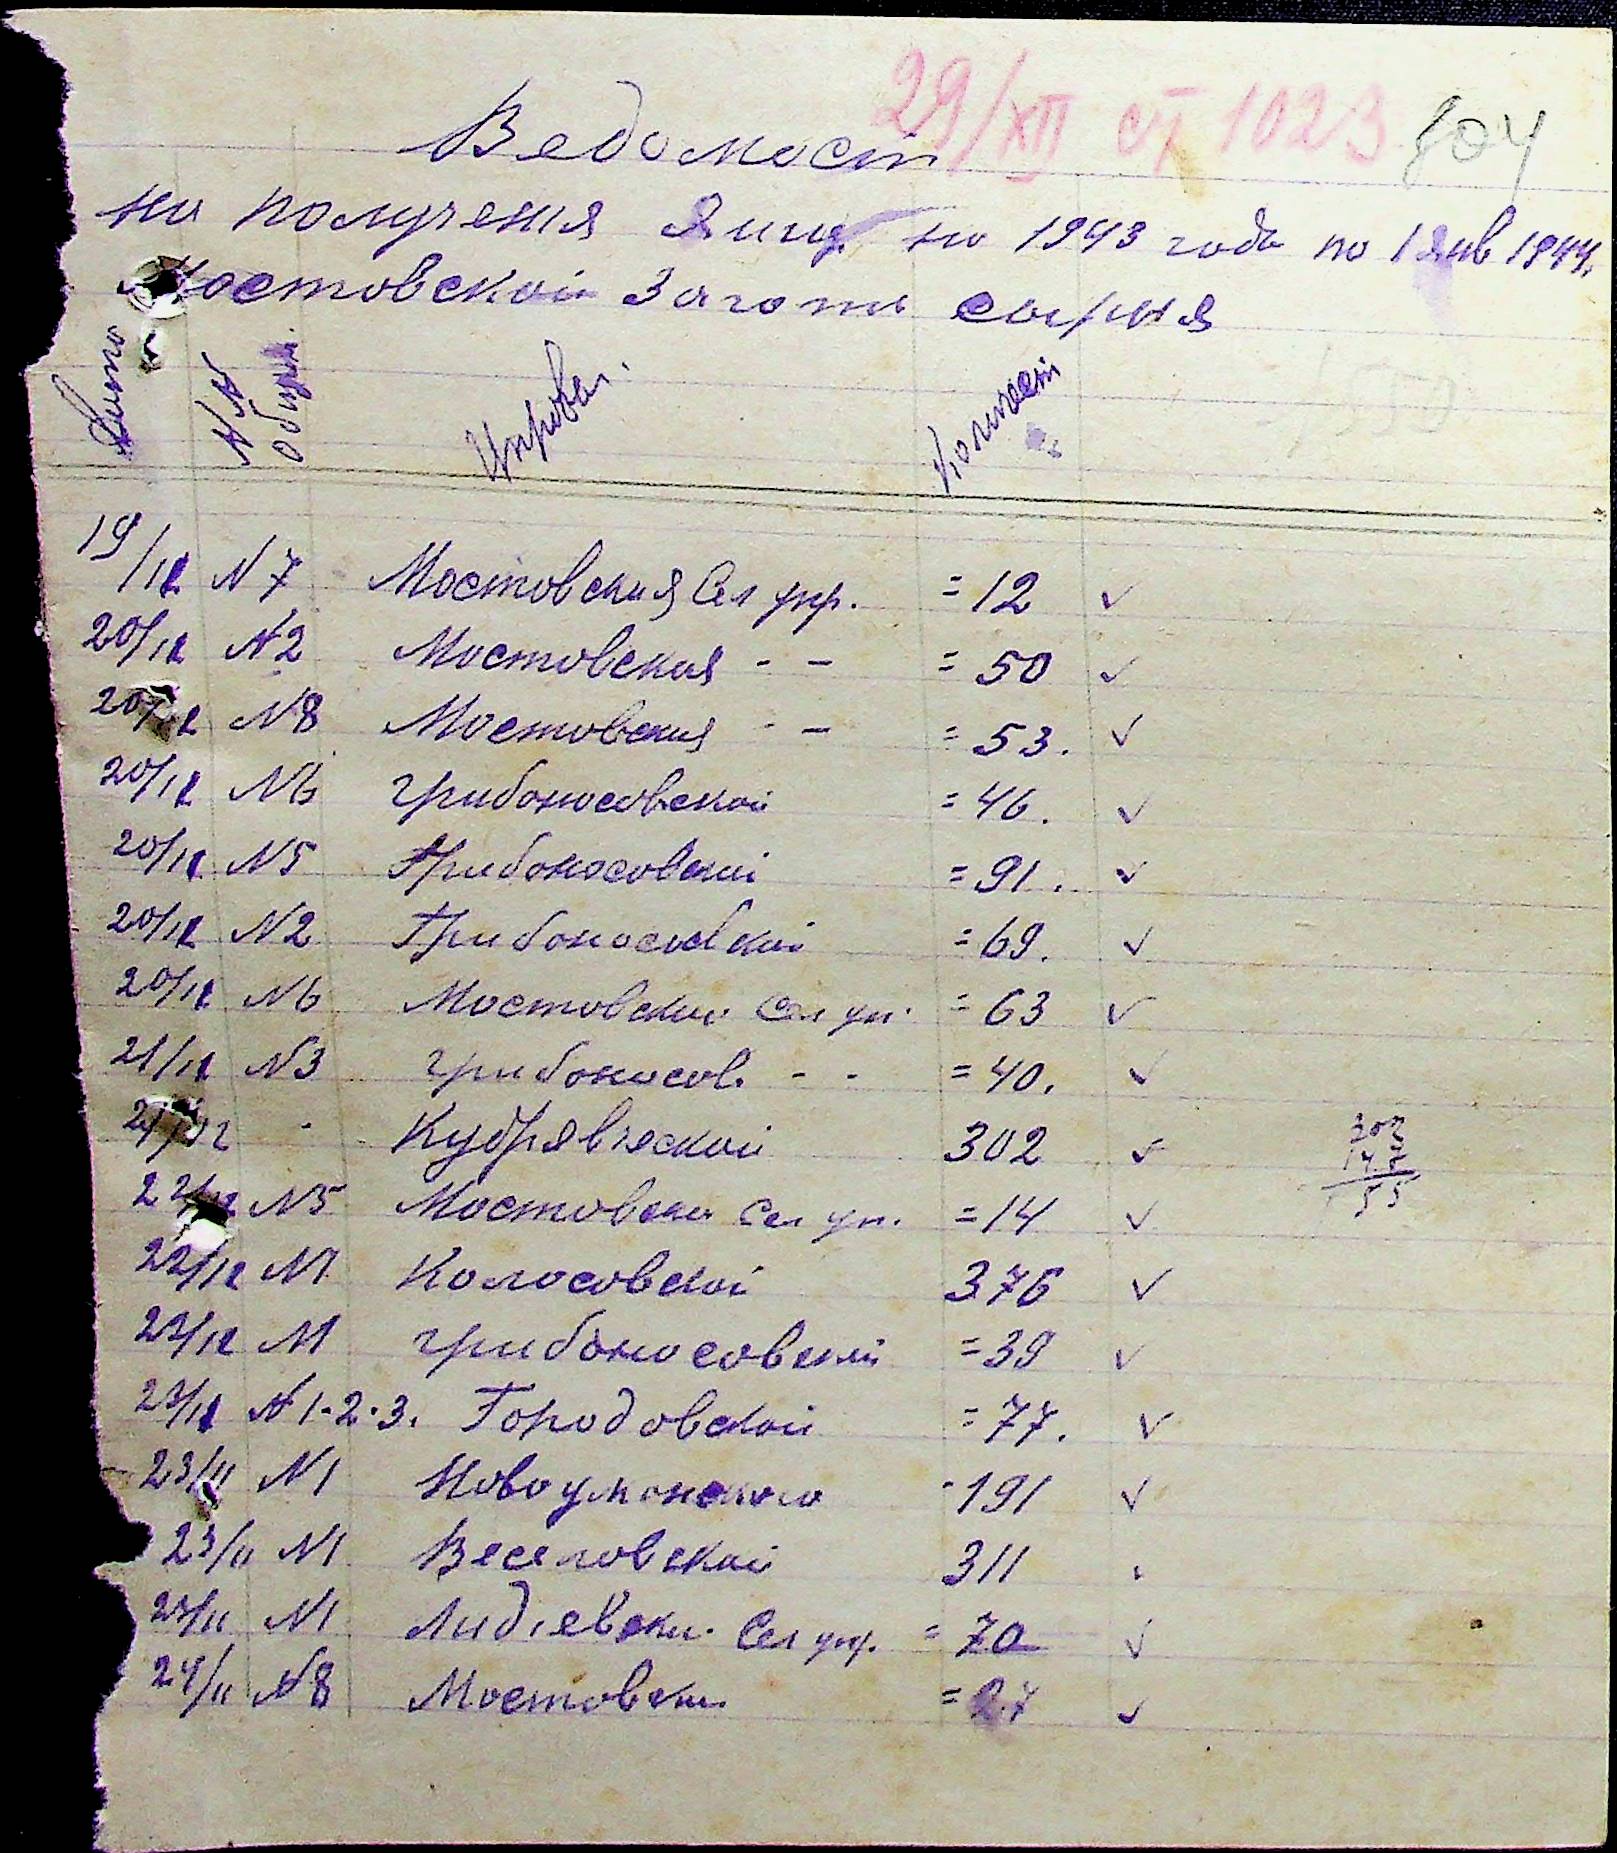 29/XII ст 1023 804
Ведомост
на получения Яиц на 1943 года по 1 Янв 1944.
Мостовской Заготи сырия
Дата
№№ общин.
Управл.
Количест
19/12 N 7 Мостовския Сел упр. = 12 ✓
20/12 N2 Мостовская - - = 50 ✓
20/12 N8 Мостовския - - = 53. ✓
20/12 N6 грибоносовской = 46. ✓
20/12 N5 Грибоносовский = 91. ✓
20/12 N2 Грибоносовской = 69. ✓
20/12 N6 Мостовские Сел уп. = 63 ✓
21/12 N3 грибоносов. - - = 40. ✓
21/12 - Кудрявчской 302 ✓
22/12 N5 Мостовски Сел уп. = 14 ✓
22/12 N1 Колосовской 376 ✓
22/12 N1 грибоносовский = 39 ✓
23/12 N 1-2-3. Городовской = 77. ✓
23/11 N1 Новоуманского -191 ✓
23/11 N1 Веселовской 311
24/11 N1 Лидіевски. Сел упр. = 70 ✓
24/11 N8 Мостовски = 27 ✓
302
147
155